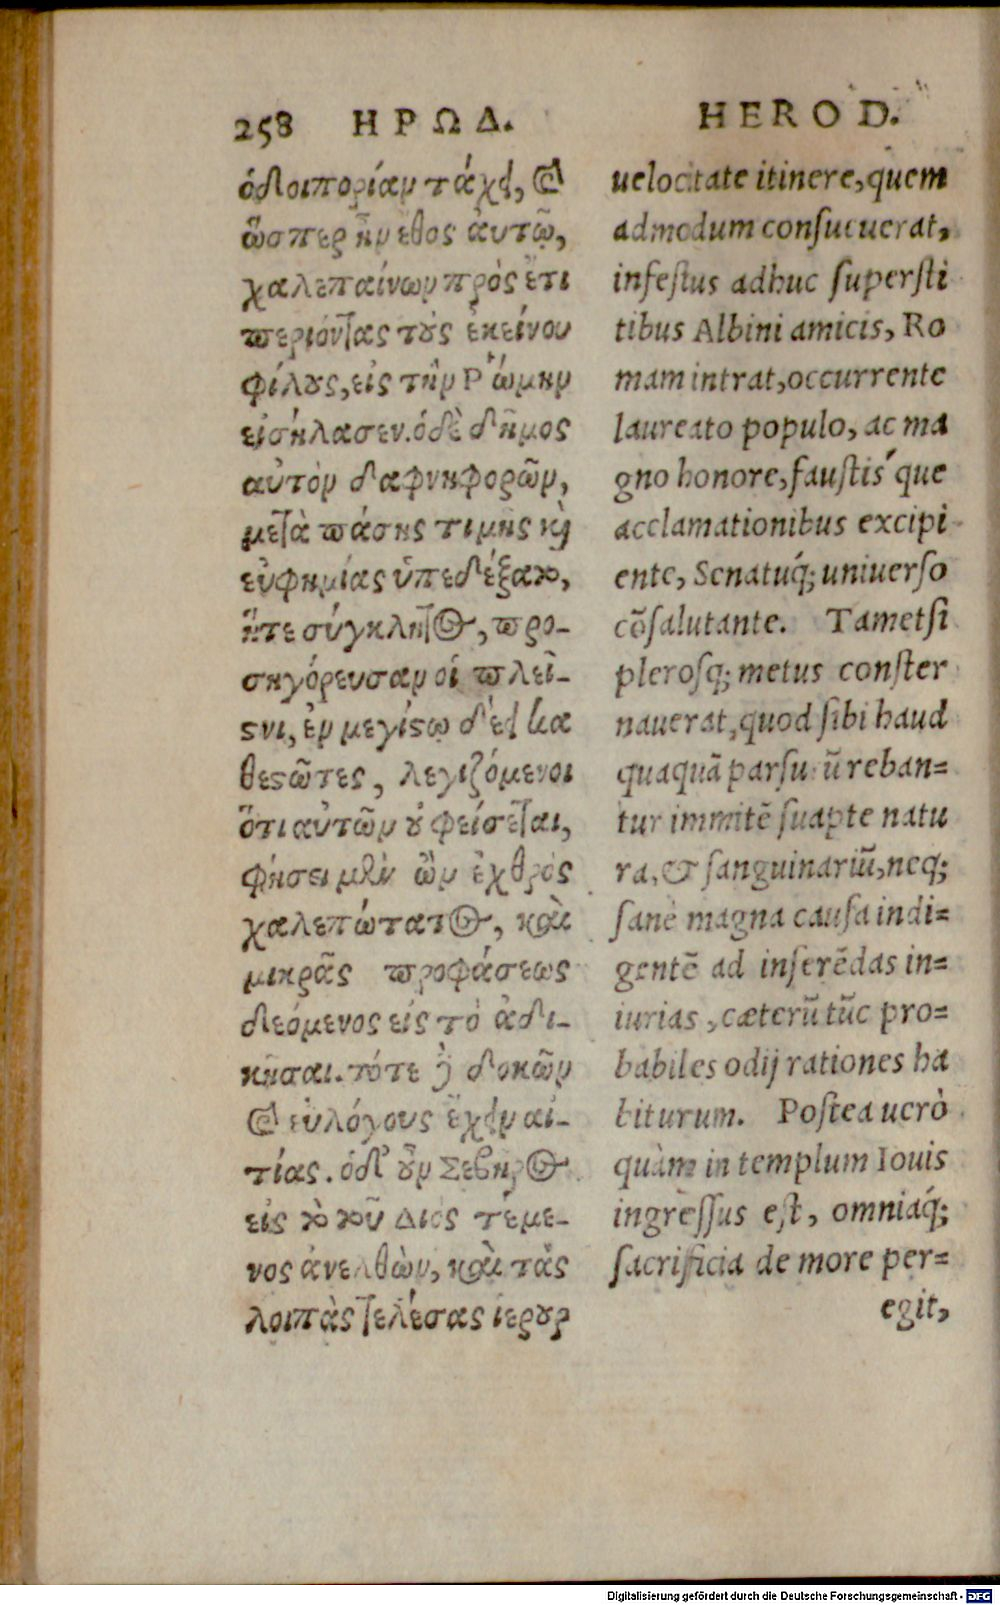 258 ΗΡΩΔ.
ὁδοιπορίαν τάχει, καὶ
ὥσπερ ἦν ἔθος ἀυτῷ,
χαλεπαίνων πρὸς ἔτι
περιόντας τοὺς ἐκείνου
φίλους, εἰς τὴν Ῥώμην
εἰσήλασεν. ὁ δὲ δῆμος
αὐτὸν δαφνηφορῶν,
μετὰ πάσης τιμῆς καὶ
εὐφημίας ὑπεδέξατο,
ἥτε σύγκλητος, προ-
σηγόρευσαν οἱ πλεῖ-
ϛοι, ἐν μεγίϛῳ δέει κα
θεϛῶτες, λογιζόμενοι
ὅτι αὐτῶν οὐ φείσεται,
φύσει μὲν ὢν ἐχθρὸς
χαλεπώτατος, καὶ
μικρᾶς προφάσεως
δεόμενος εἰς τὸ ἀδι-
κῆσαι. τότε δὲ δοκῶν
καὶ εὐλόγους ἔχειν αἰ-
τίας. ὁ δ' οὖν Σεβῆρος
εἰς τὸ τοῦ Διὸς τέμε-
νος ἀνελθὼν, καὶ τὰς
λοιπὰς τελέσας ἱερουρ
HEROD.
uelocitate itinere, quem
admodum consueuerat,
infestus adhuc supersti
tibus Albini amicis, Ro
mam intrat, occurrente
laureato populo, ac ma
gno honore, faustisque
acclamationibus excipi
ente, Senatuq́; uniuerso
cōsalutante. Tametsi
plerosq; metus conster
nauerat, quod sibi haud
quaquā parsurū reban=
tur immitē suapte natu
ra, & sanguinariū, neq;
sanè magna causa indi=
gentē ad inserēdas in=
iurias, cæterū tūc pro=
babiles odij rationes ha
biturum. Postea uerò
quàm in templum Iouis
ingressus est, omniaq́;
sacrificia de more per=
egit,
Digitalisierung gefördert durch die Deutsche Forschungsgemeinschaft - DFG